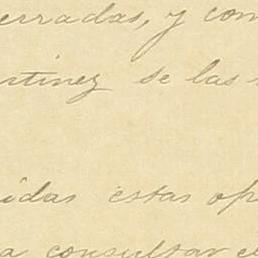 erradas, y con
rtinez se las
idas estas op
a consultar e